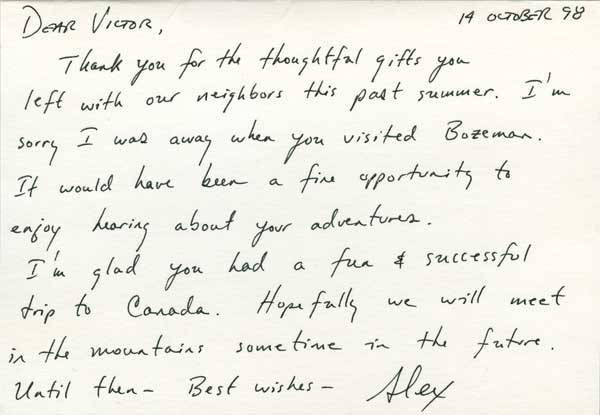 DEAR VICTOR, 14 OCTOBER 98
Thank you for the thoughtful gifts you
left with our neighbors this past summer. I'm
sorry I was away when you visited Bozeman.
It would have been a fine opportunity to
enjoy hearing about your adventures.
I'm glad you had a fun & successful
trip to Canada. Hopefully we will meet
in the mountains sometime in the future.
Until then— Best wishes— Alex